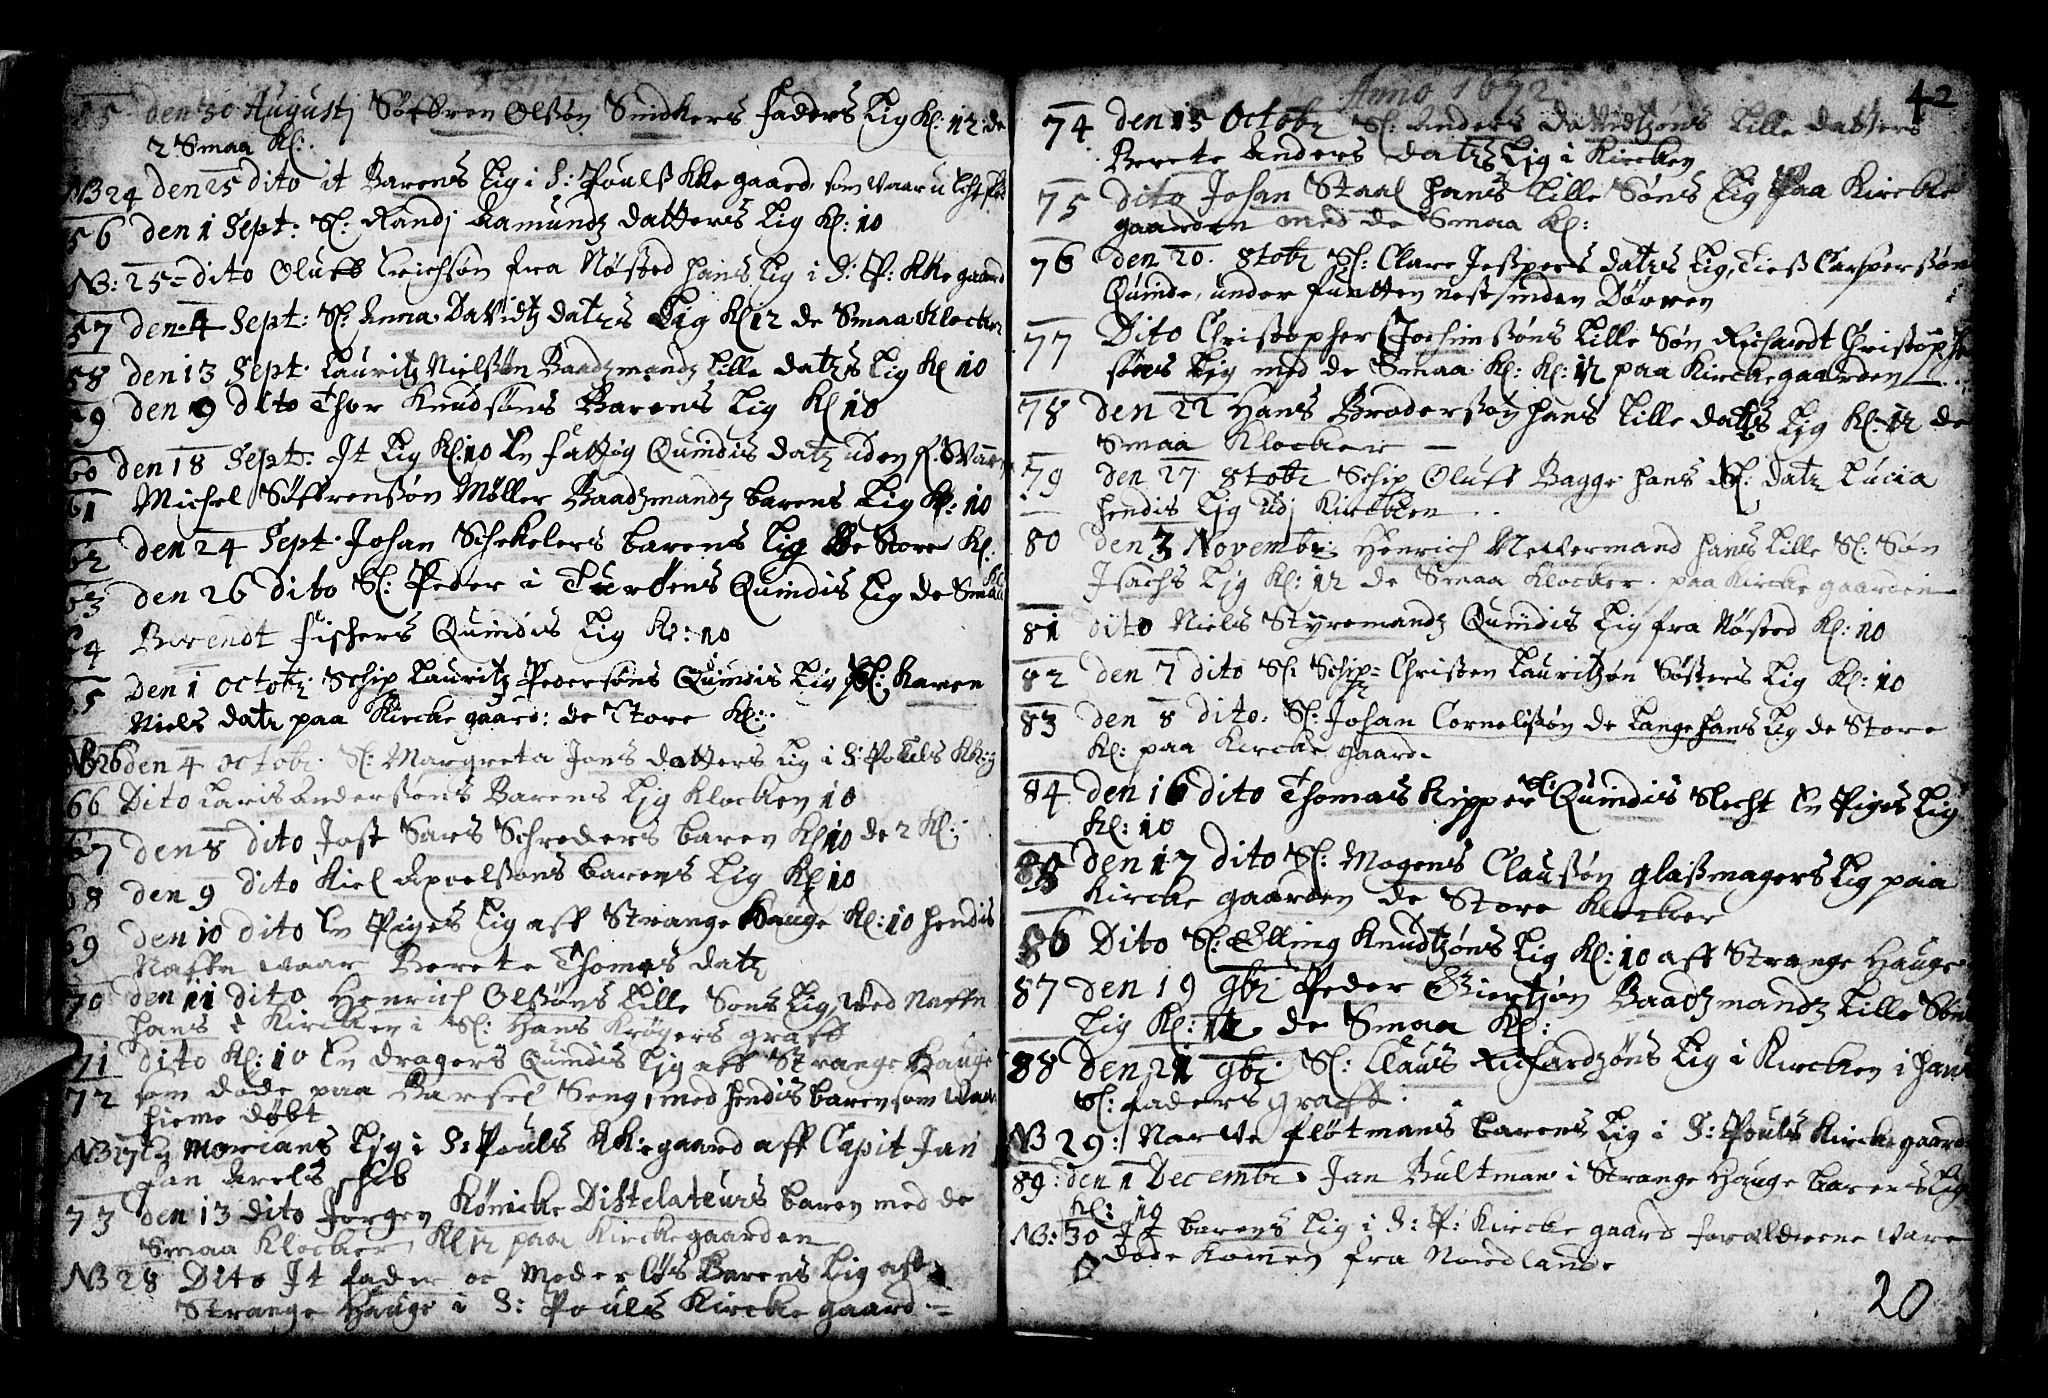 55 den 30 Augustj Søffren Olssøn Snidkers faders Lig Kl: 12 de
2 Smaa Kl:
NB 24 den 25 dito it Barens Lig i S: Pouls Kke gaard som vaar
56 den 1 Sept: Sl: Randj Aamundz datters Lig Kl: 10
NB: 25 dito Oluff Erichsøn fra Nøsted hans Lig i S: P: Kke gaard
57 den 4 Sept: Sl: Anna Davidtz datrs Lig Kl 12 de Smaa Klocker
58 den 13 Sept. Lauritz Nielssøn Baadzmandz Lille datrs Lig Kl 10
59 den 9 dito Thor Knudsøns Barens Lig Kl 10
60 den 18 Sept. It Lig Kl: 10 En fattig Quindis datr uden
61 Michel Søffrensøn Møller Baadzmandz barens Lig Kl: 10
62 den 24 Sept. Johan Schekelers barens Lig de Store Kl.
63 den 26 dito Sl: Peder i Turkens Quindis Lig de Smaa Kl
64 Berendt fischers Quindis Lig Kl: 10
65 den 1 Octobr Schip Lauritz Pedersøns Quindis Lig Sl: Karen
Niels datr paa Kircke gaard: de Store Kl:
NB 26 den 4 octobr. Sl: Margreta Jens datters Lig i S: Pouels KK: g
66 Dito Laris Anderssøns Barens Lig Klocken 10
67 den 8 dito Jost Sars Schreders baren Kl 10 de 2 Kl:
68 den 9 dito Kiel Apoelssøns barens Lig Kl 10
69 den 10 dito En Piges Lig aff Strange Hauge Kl: 10 hendis
Naffn waar Berete Thomes datr
70 den 11 dito Henrich Olssøns Lille Søns Lig, wed Naffn
hans i Kircken i Sl: Hans Krøgers graff
71 dito Kl: 10 En dragers Quindis Lig aff Strange Hauge
72 som døde paa Barsel Seng, med hendis baren som waar
hieme døbt
NB 27 En Morians Lig i S: Pouls KK: gaard aff Capit Jan
fan Arels schib
73 den 13 dito Jørgen Kønicke Distelateurs baren med de
Smaa Klocker, Kl 12 paa Kircke gaarden
NB 28 Dito It fader oc Moder løs Barens Lig aff
Strange Hauge i S: Pouls Kircke gaard
Anno 1672
42
74 den 15 Octobr Sl: Anders Davidtzøns Lille datters
Berete Anders datrs Lig i Kircken
75 dito Johan Staal hans Lille Søns Lig paa Kircke
gaarden med de Smaa Kl:
76 den 20. 8tobr Sl: Clare Jespers datrs Lig, Tiess Carsperssøn
Quinde, under funtten nest inden Dørren
77 Dito Christopher Jochimssøns Lille Søn Richardt Christopher
søns Lig med de Smaa Kl: Kl: 12 paa Kircke gaarden
78 den 22 Hans Broderssøn hans Lille datrs Lig Kl: 12 de
Smaa Klocker
79 den 27 8tobr Schip Oluff Bagge hans Sl: datr Lucia
hendis Lig udj Kircken
80 den 3 Novembr: Henrich Mevermand hans Lille Sl: Søn
Isachs Lig Kl: 12 de Smaa Klocker. paa Kircke gaarden
81 dito Niels Styremandz Quindis Lig fra Nøsted Kl: 10
82 den 7 dito Sl: Schip= Christen Lauritzøn Søsters Lig Kl: 10
83 den 8 dito. Sl: Johan Cornelissøn de Lange hans Lig de Store
Kl: paa Kircke gaard.
84 den 16 dito Thomas Kipper Sl: Quindis Slecht En Piges Lig
Kl: 10
85 den 17 dito Sl: Mogens Claussøn glassmagers Lig paa
Kircke gaarden de Store Klocker
86 Dito Sl: Elling Knudtzøns Lig Kl: 10 aff Strange Hauge
87 den 19 9br Peder Giertzøn Baadzmandz Lille Søns
Lig Kl: 12 de Smaa Kl:
88 den 21 9br. Sl: Claus Richardtzøns Lig i Kircken i hans
Sl: faders graff.
NB 29: Narve fløtmans barens Lig i S: Pouls Kircke gaard
89: den 1 Decembr. Jan Bultman i Strange Hauge barens Lig
Kl: 10
NB: 30 It barens Lig i S: P: Kircke gaard forælderne ware
døde komen fra Nordlande
20